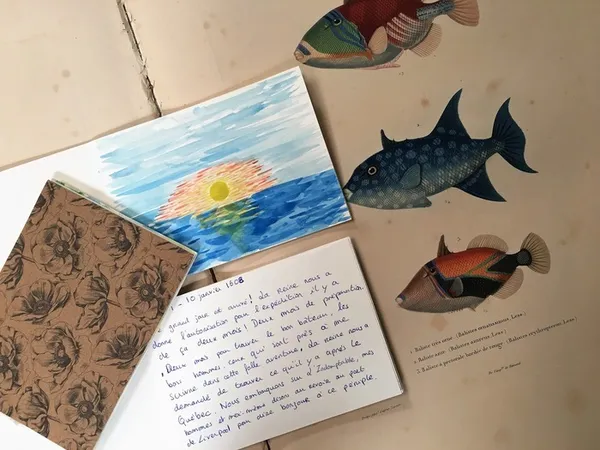 1 - 10 janvier 1608
grand jour est arrivé! La Reine nous a
donné l'autorisation pour l'expédition, il y a
de ça deux mois! Deux mois de préparation
, deux mois pour trouver le bon bateau, les
bon hommes, ceux qui sont près à me
suivre dans cette folle aventure. La reine nous a
demandé de trouver ce qu'il y a après le
Québec. Nous embarquons sur l'Indomptable, mes
hommes et moi-même disons au revoir au port
de Liverpool, pour dire bonjour à ce périple.
1. Baliste
2. Baliste noir (Balistes
3. Baliste à pectorale bordée de rouge (Balistes erythropterus, Less.)